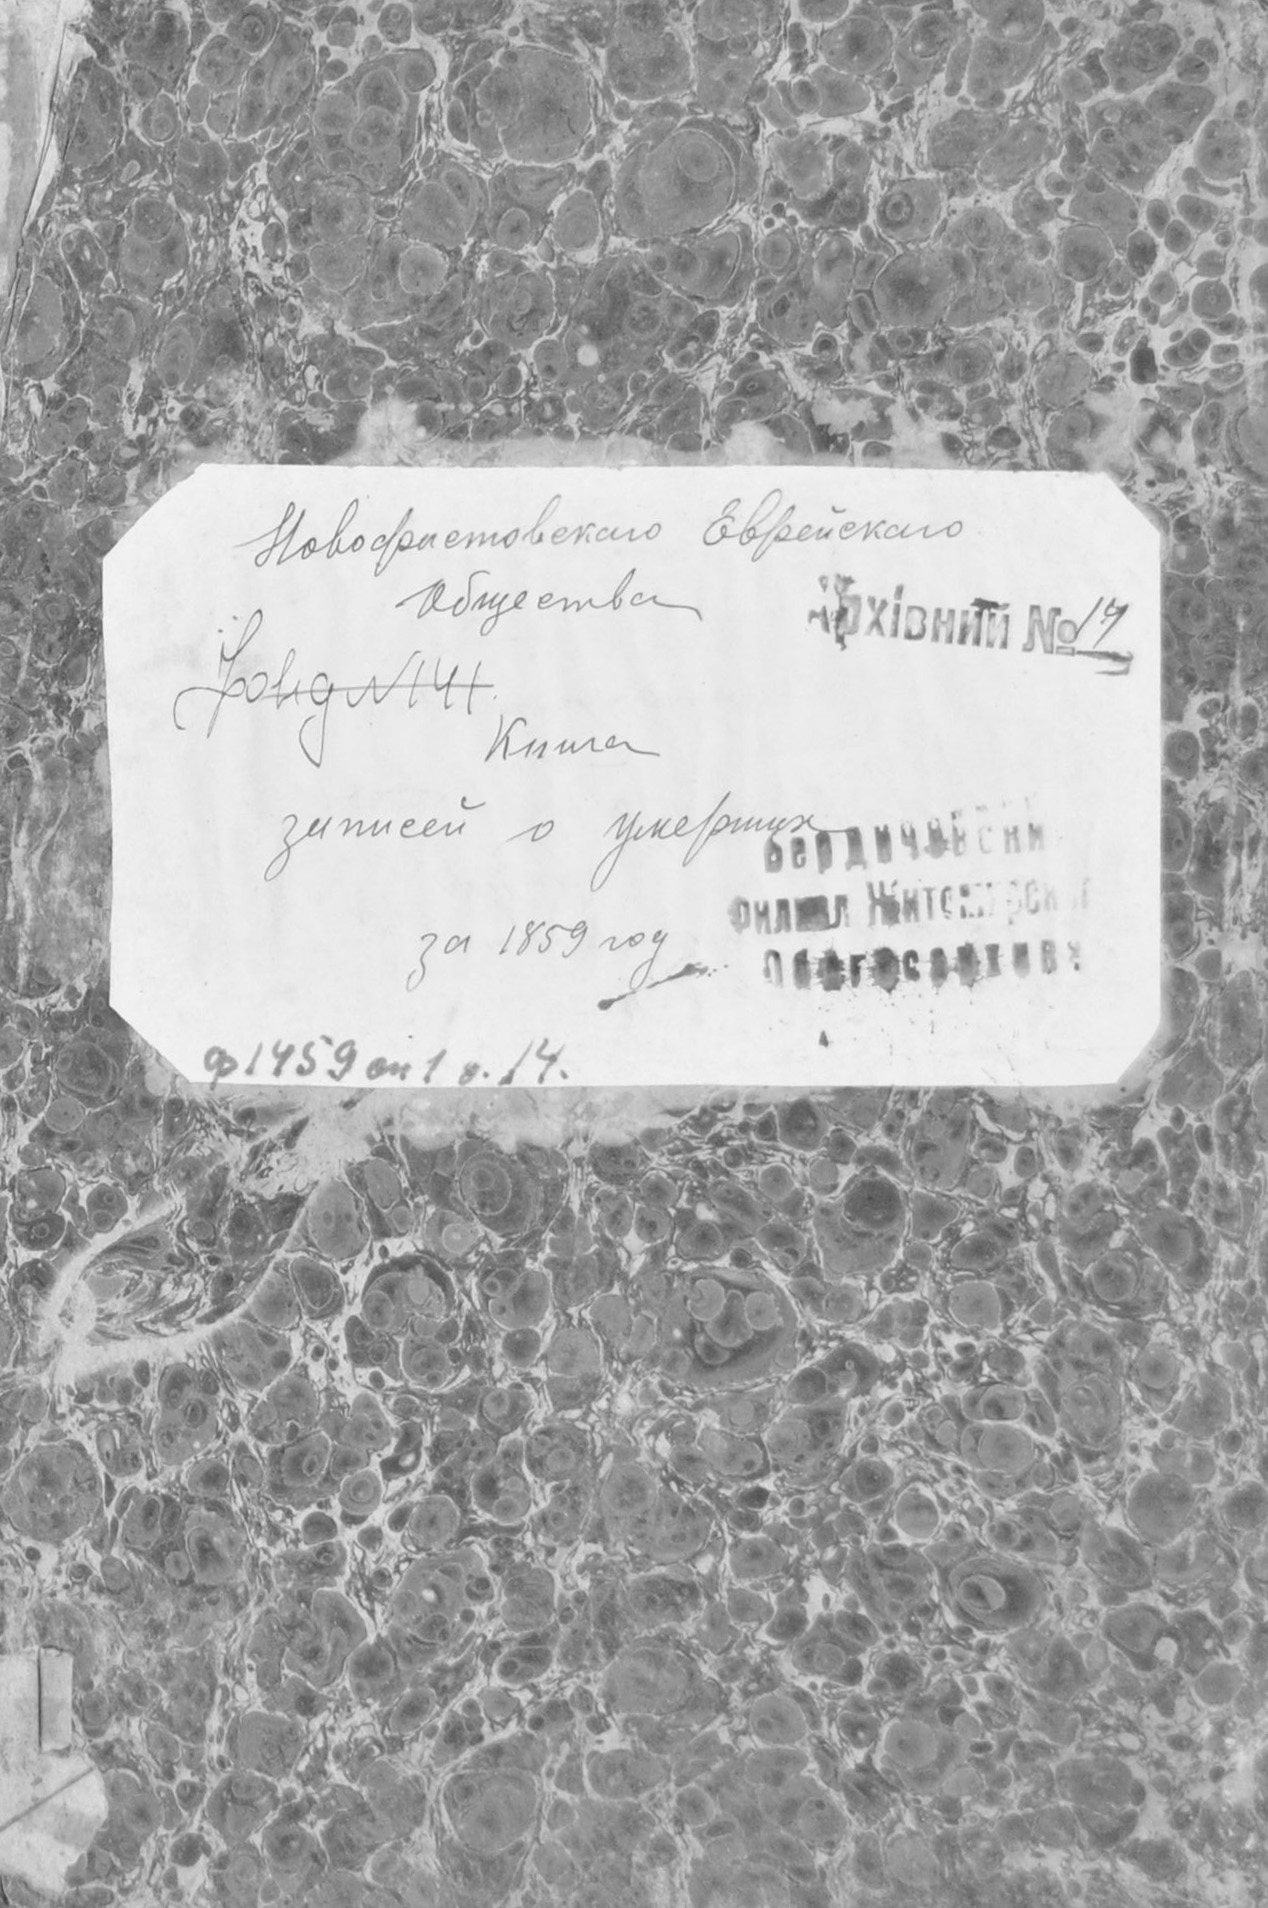 Новофастовскаго Еврейскаго
Общества
Архівний № 17
Фонд №141.
Книга
записей о умерших
за 1859 год
Бердичевский
филиал Житомирского
Облгосархива
ф 1459 оп 1 д. 14.